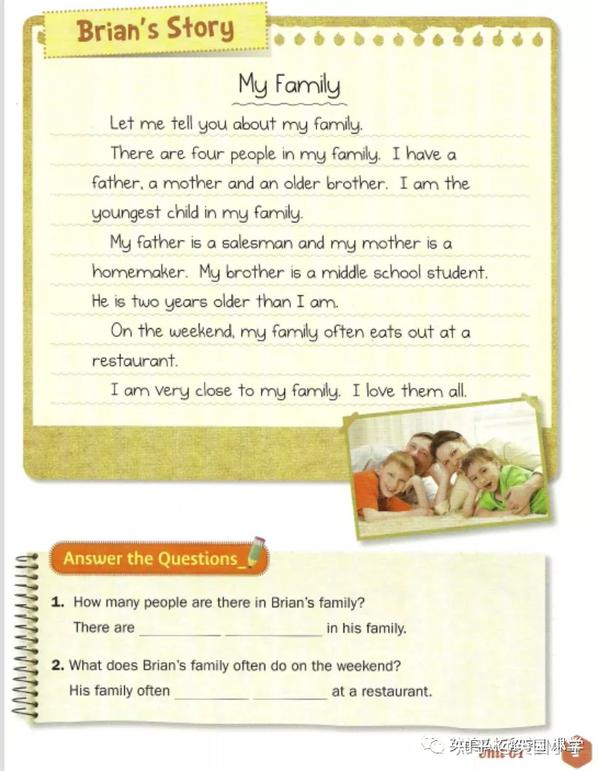 Brian's Story
My Family
Let me tell you about my family.
There are four people in my family. I have a
father, a mother and an older brother. I am the
youngest child in my family.
My father is a salesman and my mother is a
homemaker. My brother is a middle school student.
He is two years older than I am.
On the weekend, my family often eats out at a
restaurant.
I am very close to my family. I love them all.
Answer the Questions_
1. How many people are there in Brian's family?
There are ________ ________ in his family.
2. What does Brian's family often do on the weekend?
His family often ________ ________ at a restaurant.